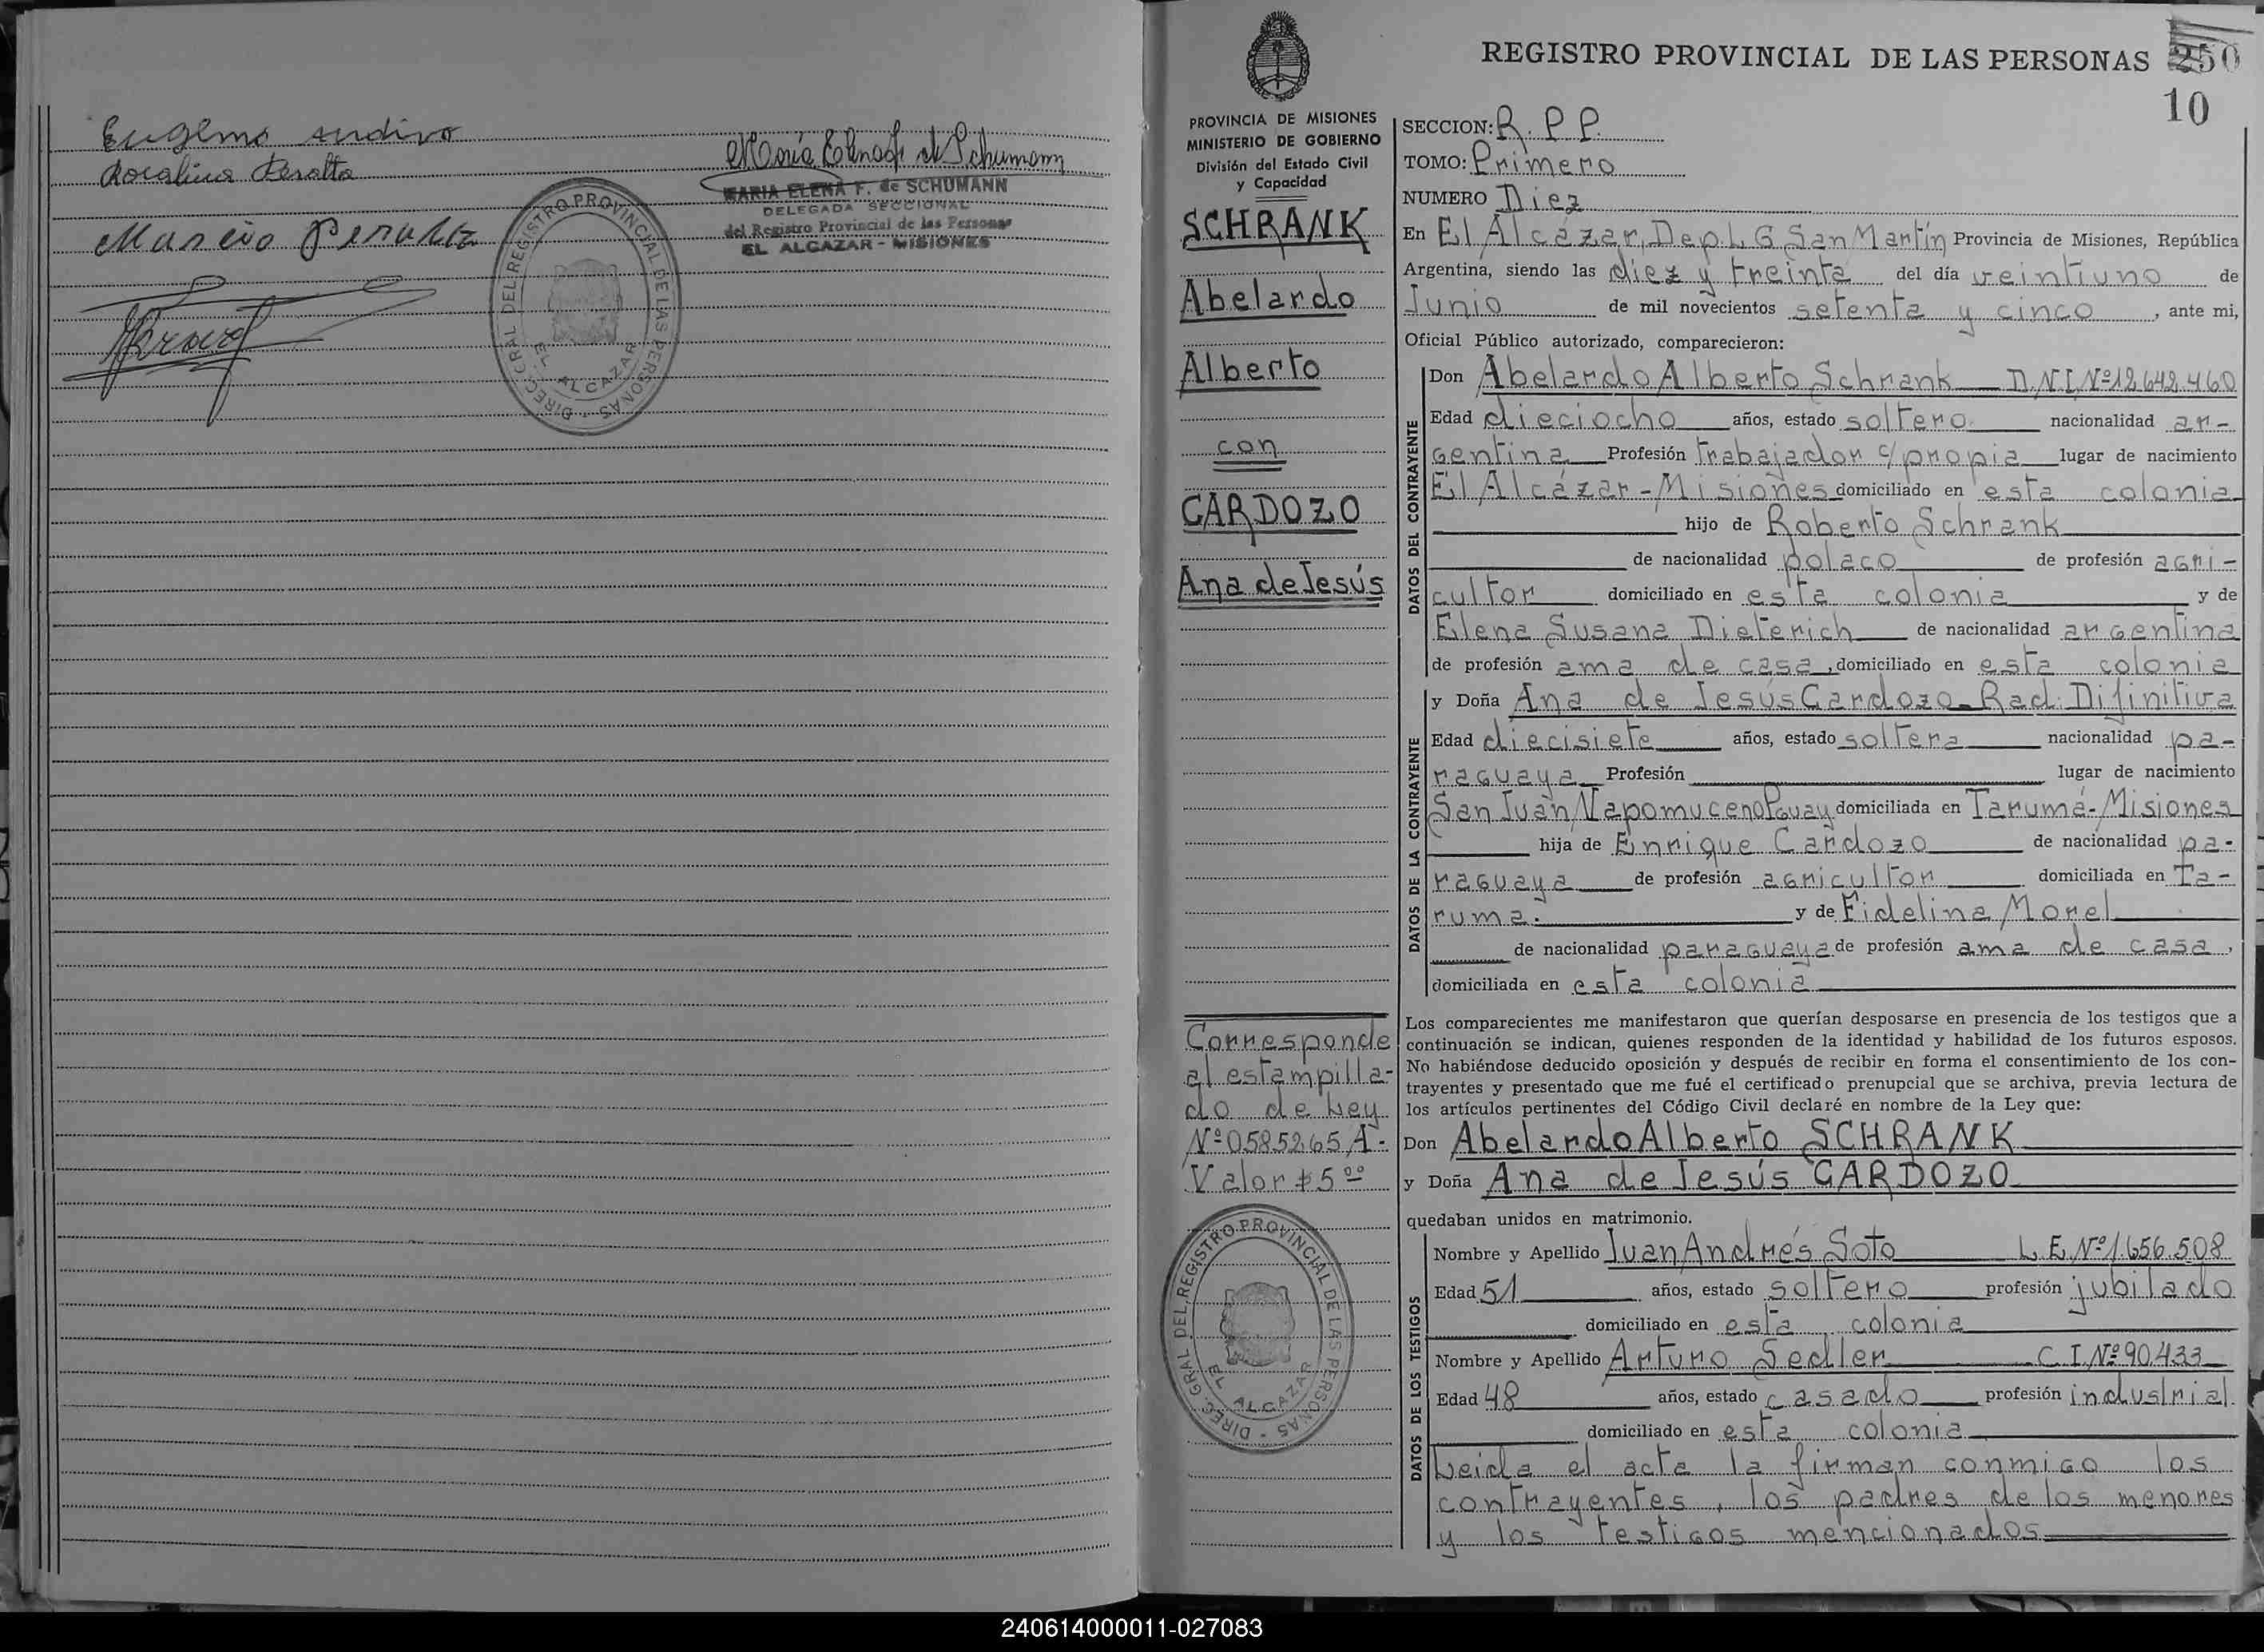 Eugenio Andino
Rosalina Peralta
Marcio Peralta
María Elena F. de Schumann
MARIA ELENA F. de SCHUMANN
DELEGADA SECCIONAL
del Registro Provincial de las Personas
EL ALCAZAR - MISIONES
DIREC. GRAL. DEL REGISTRO PROVINCIAL DE LAS PERSONAS -
EL ALCAZAR
REGISTRO PROVINCIAL DE LAS PERSONAS 250
10
PROVINCIA DE MISIONES
MINISTERIO DE GOBIERNO
División del Estado Civil
y Capacidad
SCHRANK
Abelardo
Alberto
con
CARDOZO
Ana de Jesús
Corresponde
al estampilla-
do de Ley
Nº 0585265 A-
Valor $ 5 00
DIREC. GRAL. DEL REGISTRO PROVINCIAL DE LAS PERSONAS -
EL ALCAZAR
SECCION: R. P. P.
TOMO: Primero
NUMERO Diez
En El Alcázar, Dep L G San Martín Provincia de Misiones, República
Argentina, siendo las diez y treinta del día veintiuno de
Junio de mil novecientos setenta y cinco, ante mi,
Oficial Público autorizado, comparecieron:
DATOS DEL CONTRAYENTE
Don Abelardo Alberto Schrank D.N.I. Nº 12.642.460
Edad dieciocho años, estado soltero nacionalidad ar-
gentina Profesión trabajador c/ propia lugar de nacimiento
El Alcázar - Misiones domiciliado en esta colonia
hijo de Roberto Schrank
de nacionalidad polaco de profesión agri-
cultor domiciliado en esta colonia y de
Elena Susana Dieterich de nacionalidad argentina
de profesión ama de casa, domiciliado en esta colonia
DATOS DE LA CONTRAYENTE
y Doña Ana de Jesús Cardozo - Rad. Difinitiva
Edad diecisiete años, estado soltera nacionalidad pa-
raguaya Profesión lugar de nacimiento
San Juan Napomuceno Pguay domiciliada en Tarumá - Misiones
hija de Enrique Cardozo de nacionalidad pa-
raguaya de profesión agricultor domiciliada en Ta-
ruma. y de Fidelina Morel
de nacionalidad paraguaya de profesión ama de casa,
domiciliada en esta colonia
Los comparecientes me manifestaron que querían desposarse en presencia de los testigos que a
continuación se indican, quienes responden de la identidad y habilidad de los futuros esposos.
No habiéndose deducido oposición y después de recibir en forma el consentimiento de los con-
trayentes y presentado que me fué el certificado prenupcial que se archiva, previa lectura de
los artículos pertinentes del Código Civil declaré en nombre de la Ley que:
Don Abelardo Alberto SCHRANK
y Doña Ana de Jesús CARDOZO
quedaban unidos en matrimonio.
DATOS DE LOS TESTIGOS
Nombre y Apellido Juan Andrés Soto L.E. Nº 1.656.508
Edad 51 años, estado soltero profesión jubilado
domiciliado en esta colonia
Nombre y Apellido Arturo Sedler C.I. Nº 90.433
Edad 48 años, estado casado profesión industrial
domiciliado en esta colonia
Leida el acta la firman conmigo los
contrayentes, los padres de los menores
y los testigos mencionados
240614000011-027083